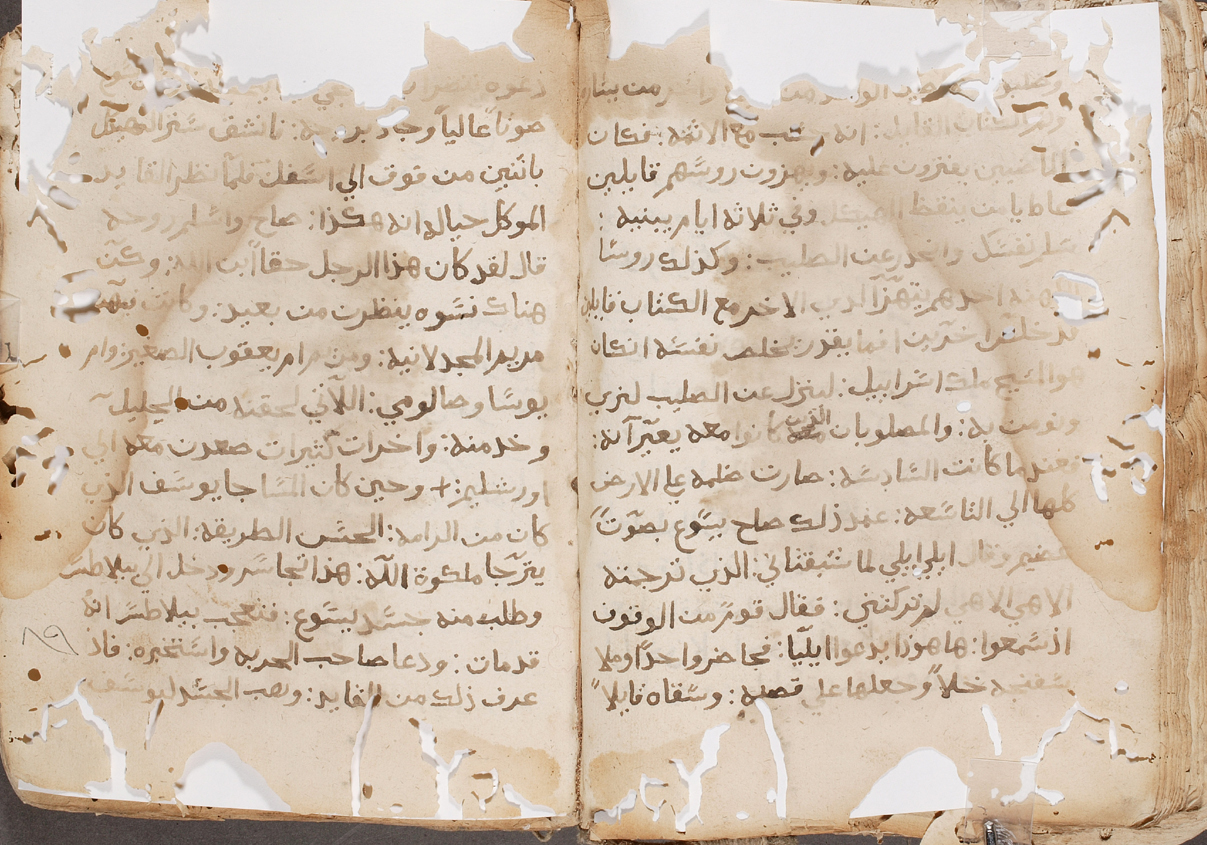 من يسار
ولم الكتاب القايل: انه مع الاثمة: فكان
الماضيين يفترون عليه: ويهزون روسهم قايلين
هاه يا من ينقض الهيكل وفي ثلاثة ايام يبنيه:
سلم نفسك وانحدر عن الصليب: وكذلك روسا
الكهنه احدهم يتهزا الاخر مع الكتاب قايلين
قد خلص اخرين انما يقدر يخلص نفسه ان كان
هو المسيح ملك اسراييل: لينزل عن الصليب لنري
ونومن به: والمصلوبان الذين كانوا معه يعيرانه:
فعند ما كانت السادسة: صارت ظلمه علي الارض
كلها الي التاسعه: عند ذلك صاح يسوع بصوت
عظيم وقال ايلي ايلي لما شبقتاني: الذي ترجمته
الاهي الاهي لم تركتني: فقال قوم من الوقوف
اذ سمعوا: ها هوذا يدعوا ايليا: فحاضر واحدا وملا
سفنجه خلاً وجعلها علي قصبه: وسقاه قايلاً
دعوه
صوتاً عالياً وجاد بروحه: فانشق ستر الهيكل
باثنين من فوق الي اسفل فلما نظر القايد
الموكل حياله انه هكذا: صاح واسلم روحه
قال لقد كان هذا الرجل حقاً ابن الله: وكن
هناك نسوه ينظرن من بعيد: وكانت
مريم المجدلانية: ومريم ام يعقوب الصغير: وام
يوسا وصالومي: اللاتي لحقنه من الجليل
وخدمنه: واخرات كثيرات صعدت معه الي
اورشليم: + وحين كان المسا جا يوسف الذي
كان من الرامة: الحسن الطريقة: الذي كان
يترجا ملكوة الله: هذا تجاسر ودخل الي بيلاطس
وطلب منه جسد يسوع: فتعجب بيلاطس انه
قد مات: ودعا صاحب الحربه واستخبره: فلذ
عرف ذلك من القايد: وهب الجسد ليوسف
٨٩